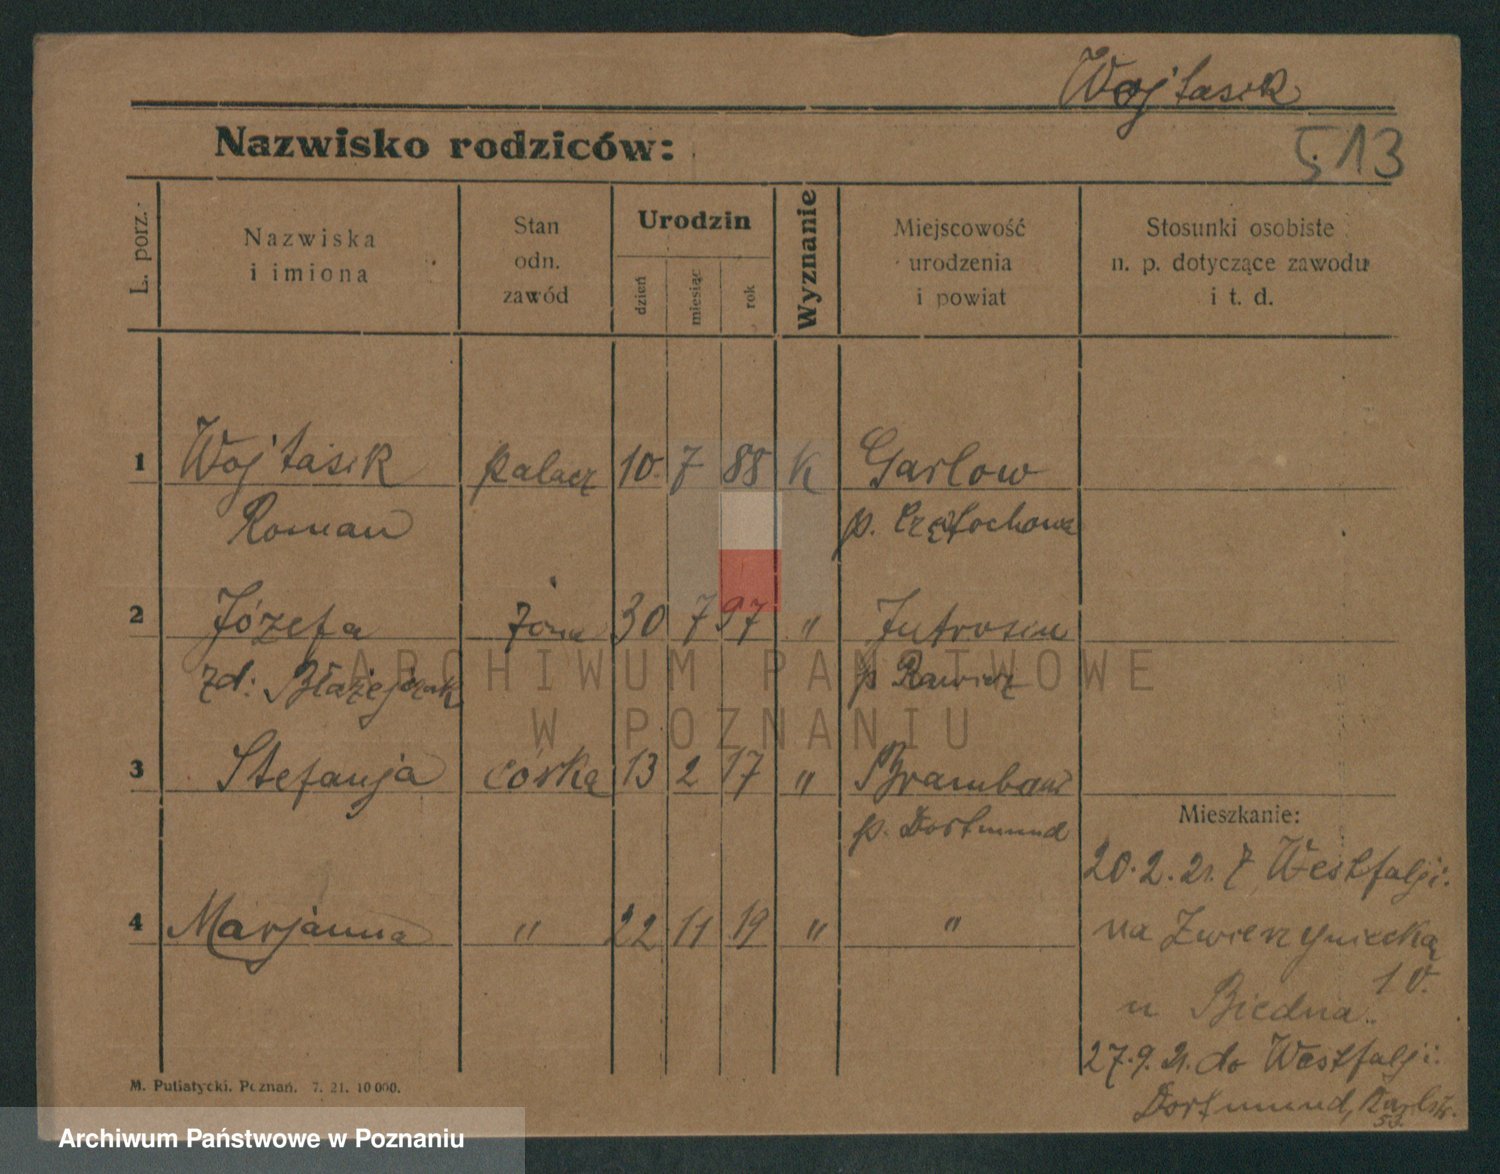 Wojtasik
Nazwisko rodziców:
513
L. porz.
Nazwiska
i imiona
Stan
odn.
zawód
Urodzin
dzień
miesiąc
rok
Wyznanie
Miejscowość
urodzenia
i powiat
Stosunki osobiste
n. p. dotyczące zawodu
i t. d.
1 Wojtasik palacz 10 7 88 K Garlow
Roman p. Częstochowa
2 Józefa żona 30 7 97 " Jutrosin
zd: Błażejczak p Rawicz
3 Stefanja córka 13 2 17 " Brambauer
p. Dortmund
Mieszkanie:
20.2.21. z Westfalji.
4 Marjanna " 22 11 19 " "
na Zwierzyniecką
10.
u Biedna.
27.9.21. do Westfalji.
Dortmund, Karlstr.
53.
M. Putiatycki. Poznań. 7. 21. 10 000.
ARCHIWUM PAŃSTWOWE
W POZNANIU
Archiwum Państwowe w Poznaniu